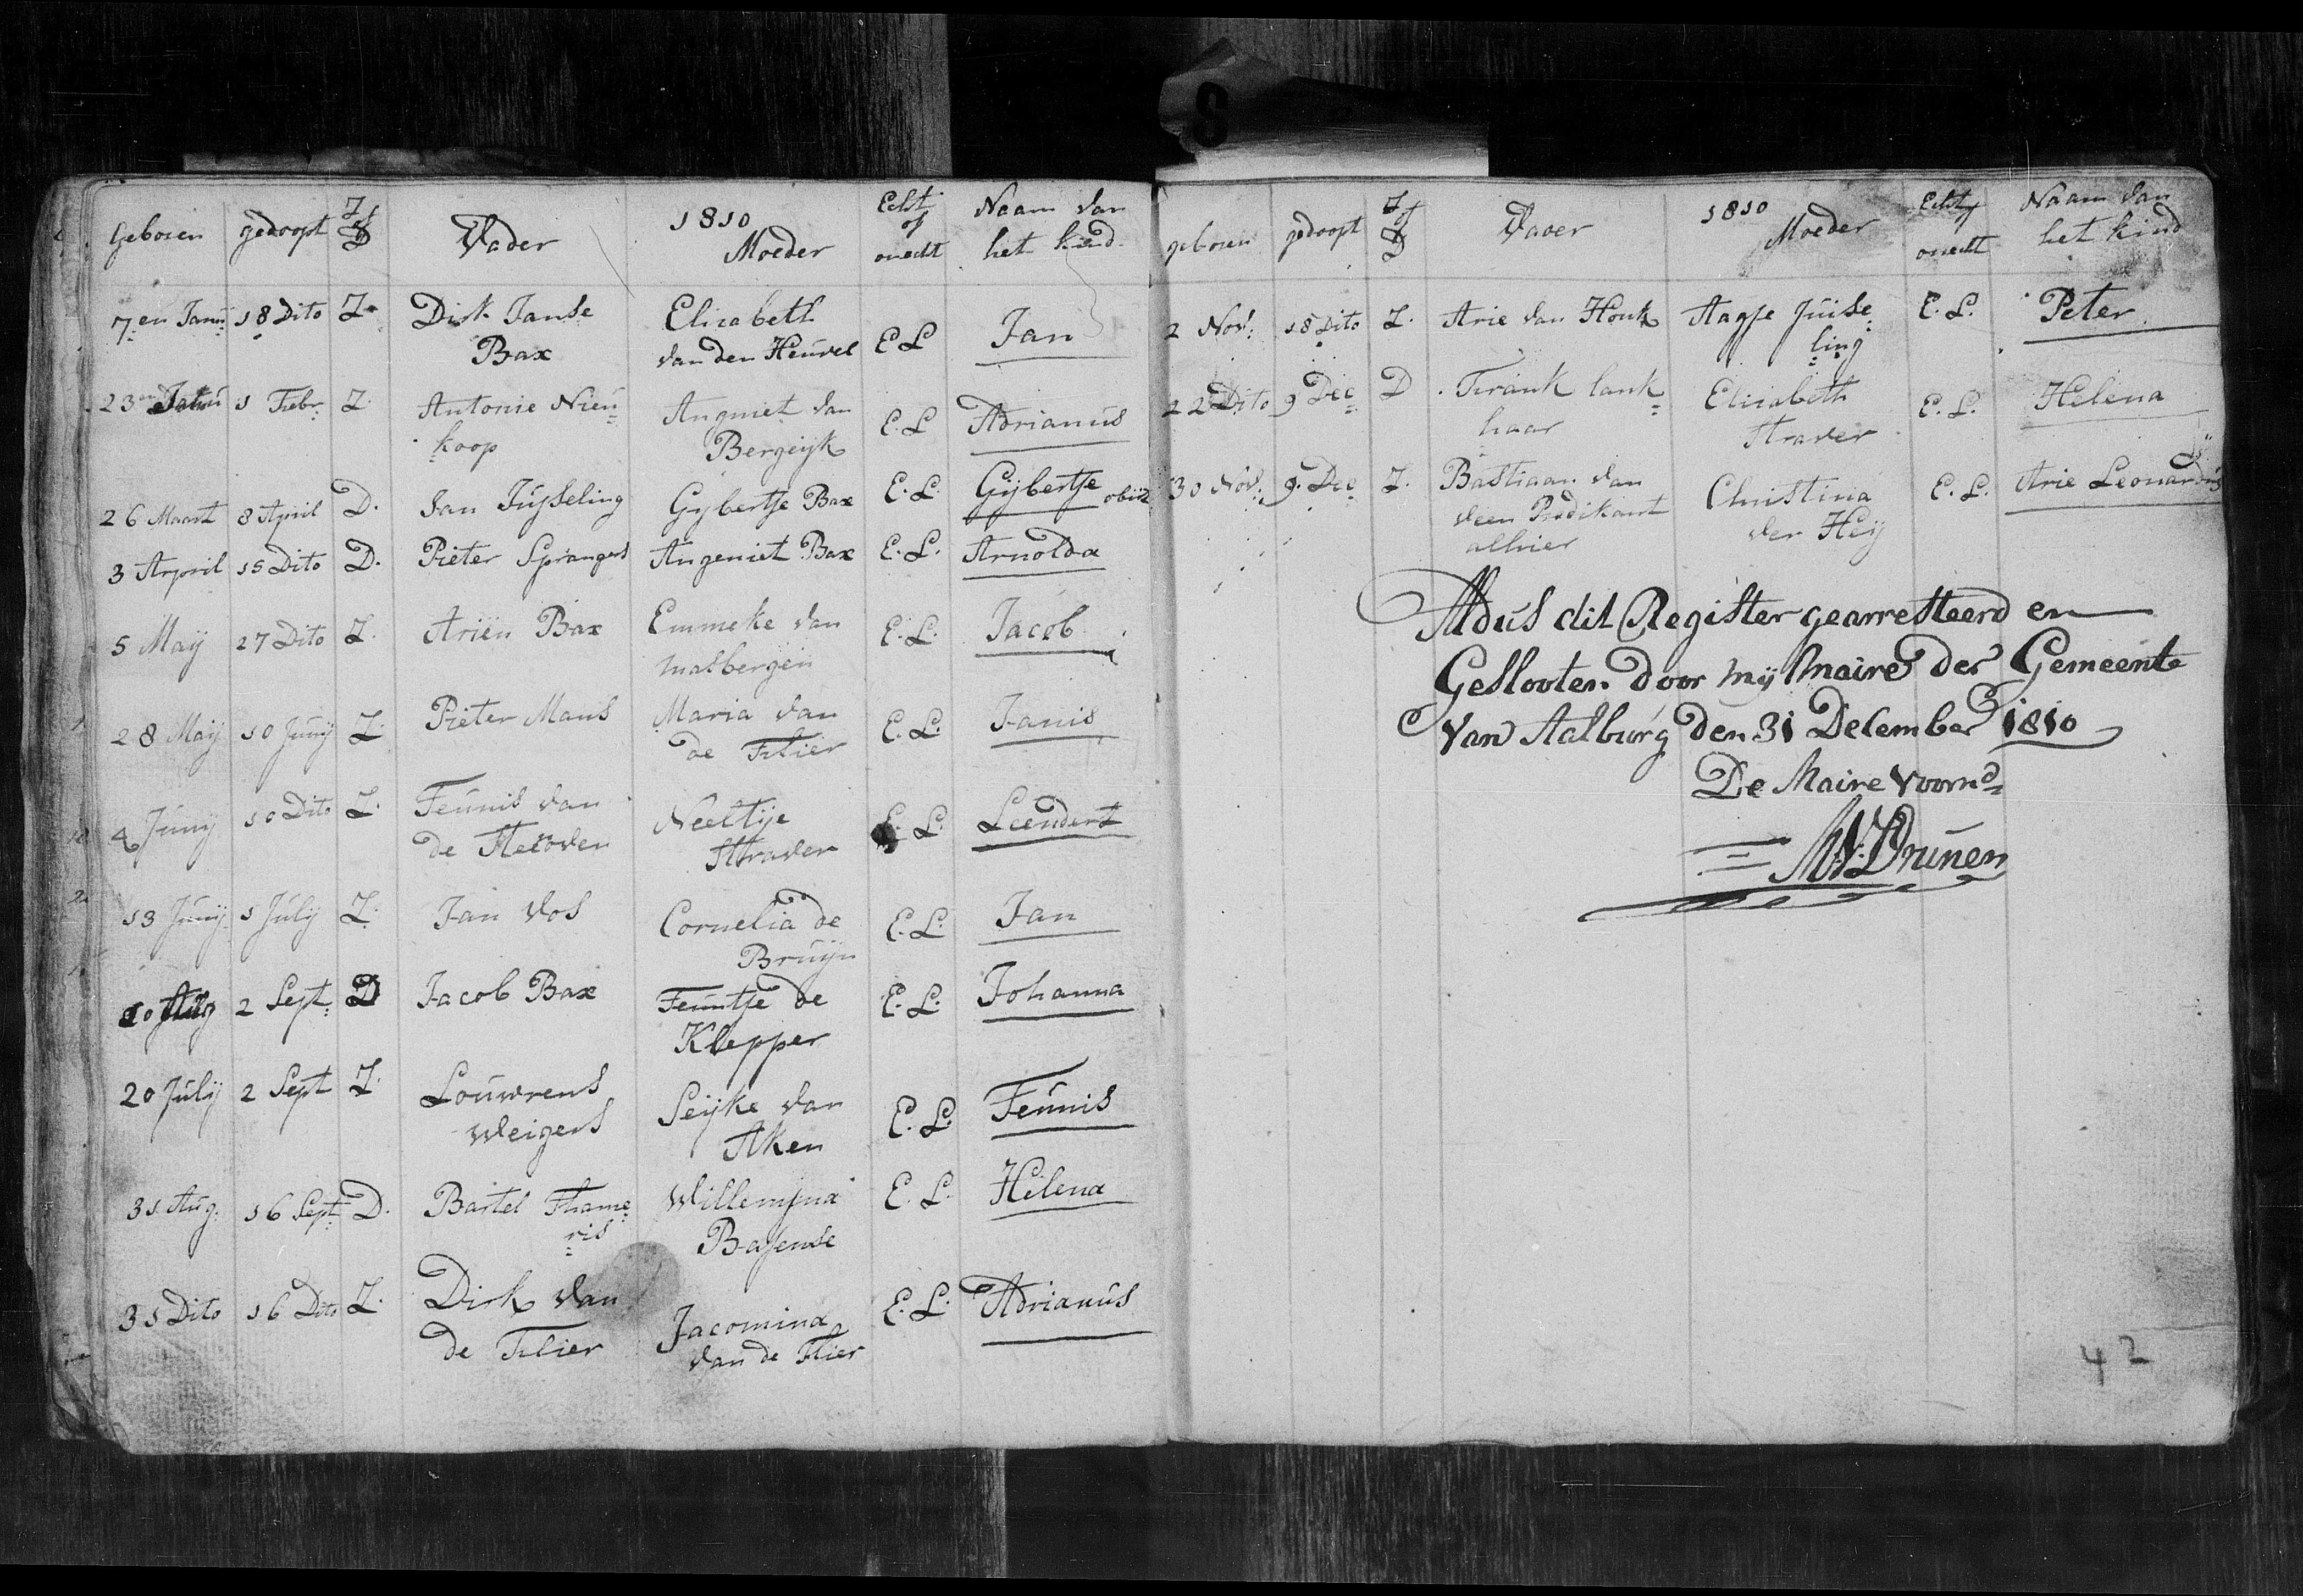 Geboren gedoopt Z of D Vader 1810 Moeder Echt of onecht Naam van het kind
7en Janu 18 Dito Z. Dirk Janse Elisabeth E L Jan
Bax van den Heuvel
23en Janu 1 Febr: Z. Antonie Nieu= Angniet van E. L Adrianus
koop Bergeijk
26 Maart 8 April D. Jan Juyseling Gijbertje Bax E. L. Gijbertje obiit
3 Arpril 15 Dito D. Pieter Sprangers Angeniet Bax E. L. Arnolda
5 Maij 27 Dito Z. Ariën Bax Emmeke van E. L. Jacob
masbergen
28 Maij 10 Junij Z. Pieter Mans Maria van E. L. Janis
de Flier
4 Junij 10 Dito Z. Teunis van Neeltije E. L. Leendert
de Straver
13 Junij 1 Julij Z. Jan Vos Cornelia de E. L. Jan
Bruijn
10 Aug 2 Sept: D Jacob Bax Teuntje de E. L. Johanna
Klepper
20 Julij 2 Sept Z. Louwrens Seijke van E. L. Teunis
Weigers Aken
31 Aug. 16 Sept: D. Bartel Thame= Willemjna E. L. Helena
ris Basense
31 Dito 16 Dito Z. Dirk van Jacomina E. L. Adrianus
de Flier van de Flier
geboren gedoopt Z of D Vader 1810 Moeder Echt of onecht Naam van het kind
2 Nov: 18 Dito Z. Arie van Honk Aagje Juise= E. L. Peter
ling
22 Dito 9 Dec= D. Frank lank= Elisabeth E. L. Helena
haar Straver
30 Nov: 9. Dec= Z. Bastiaan van Christina E. L. Arie Leonardus
veen Predikant der Heij
alhier
Aldus dit Register gearresteerd en
Geslooten door mij Maire der Gemeente
Van Aalburg den 31 December 1810
De Maire voornd=
MV: Drunen
42
8